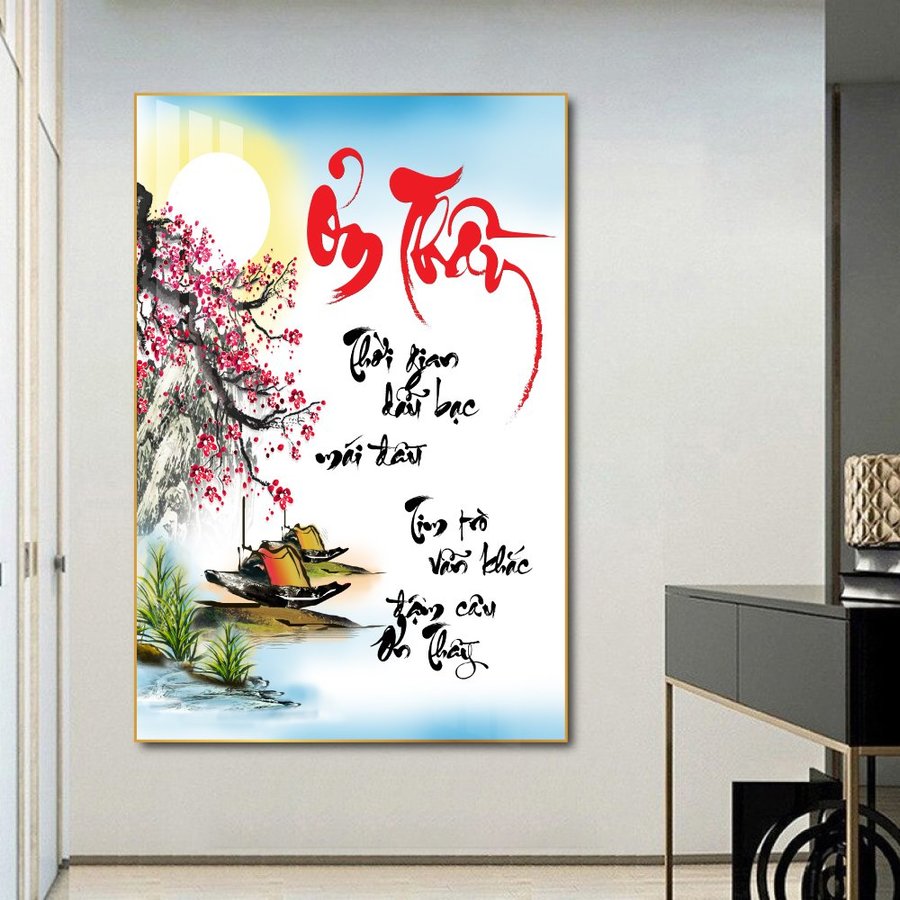 Ơn Thầy
Thời gian
dẫu bạc
mái đầu
Tim trò
vẫn khắc
đậm câu
Ơn Thầy